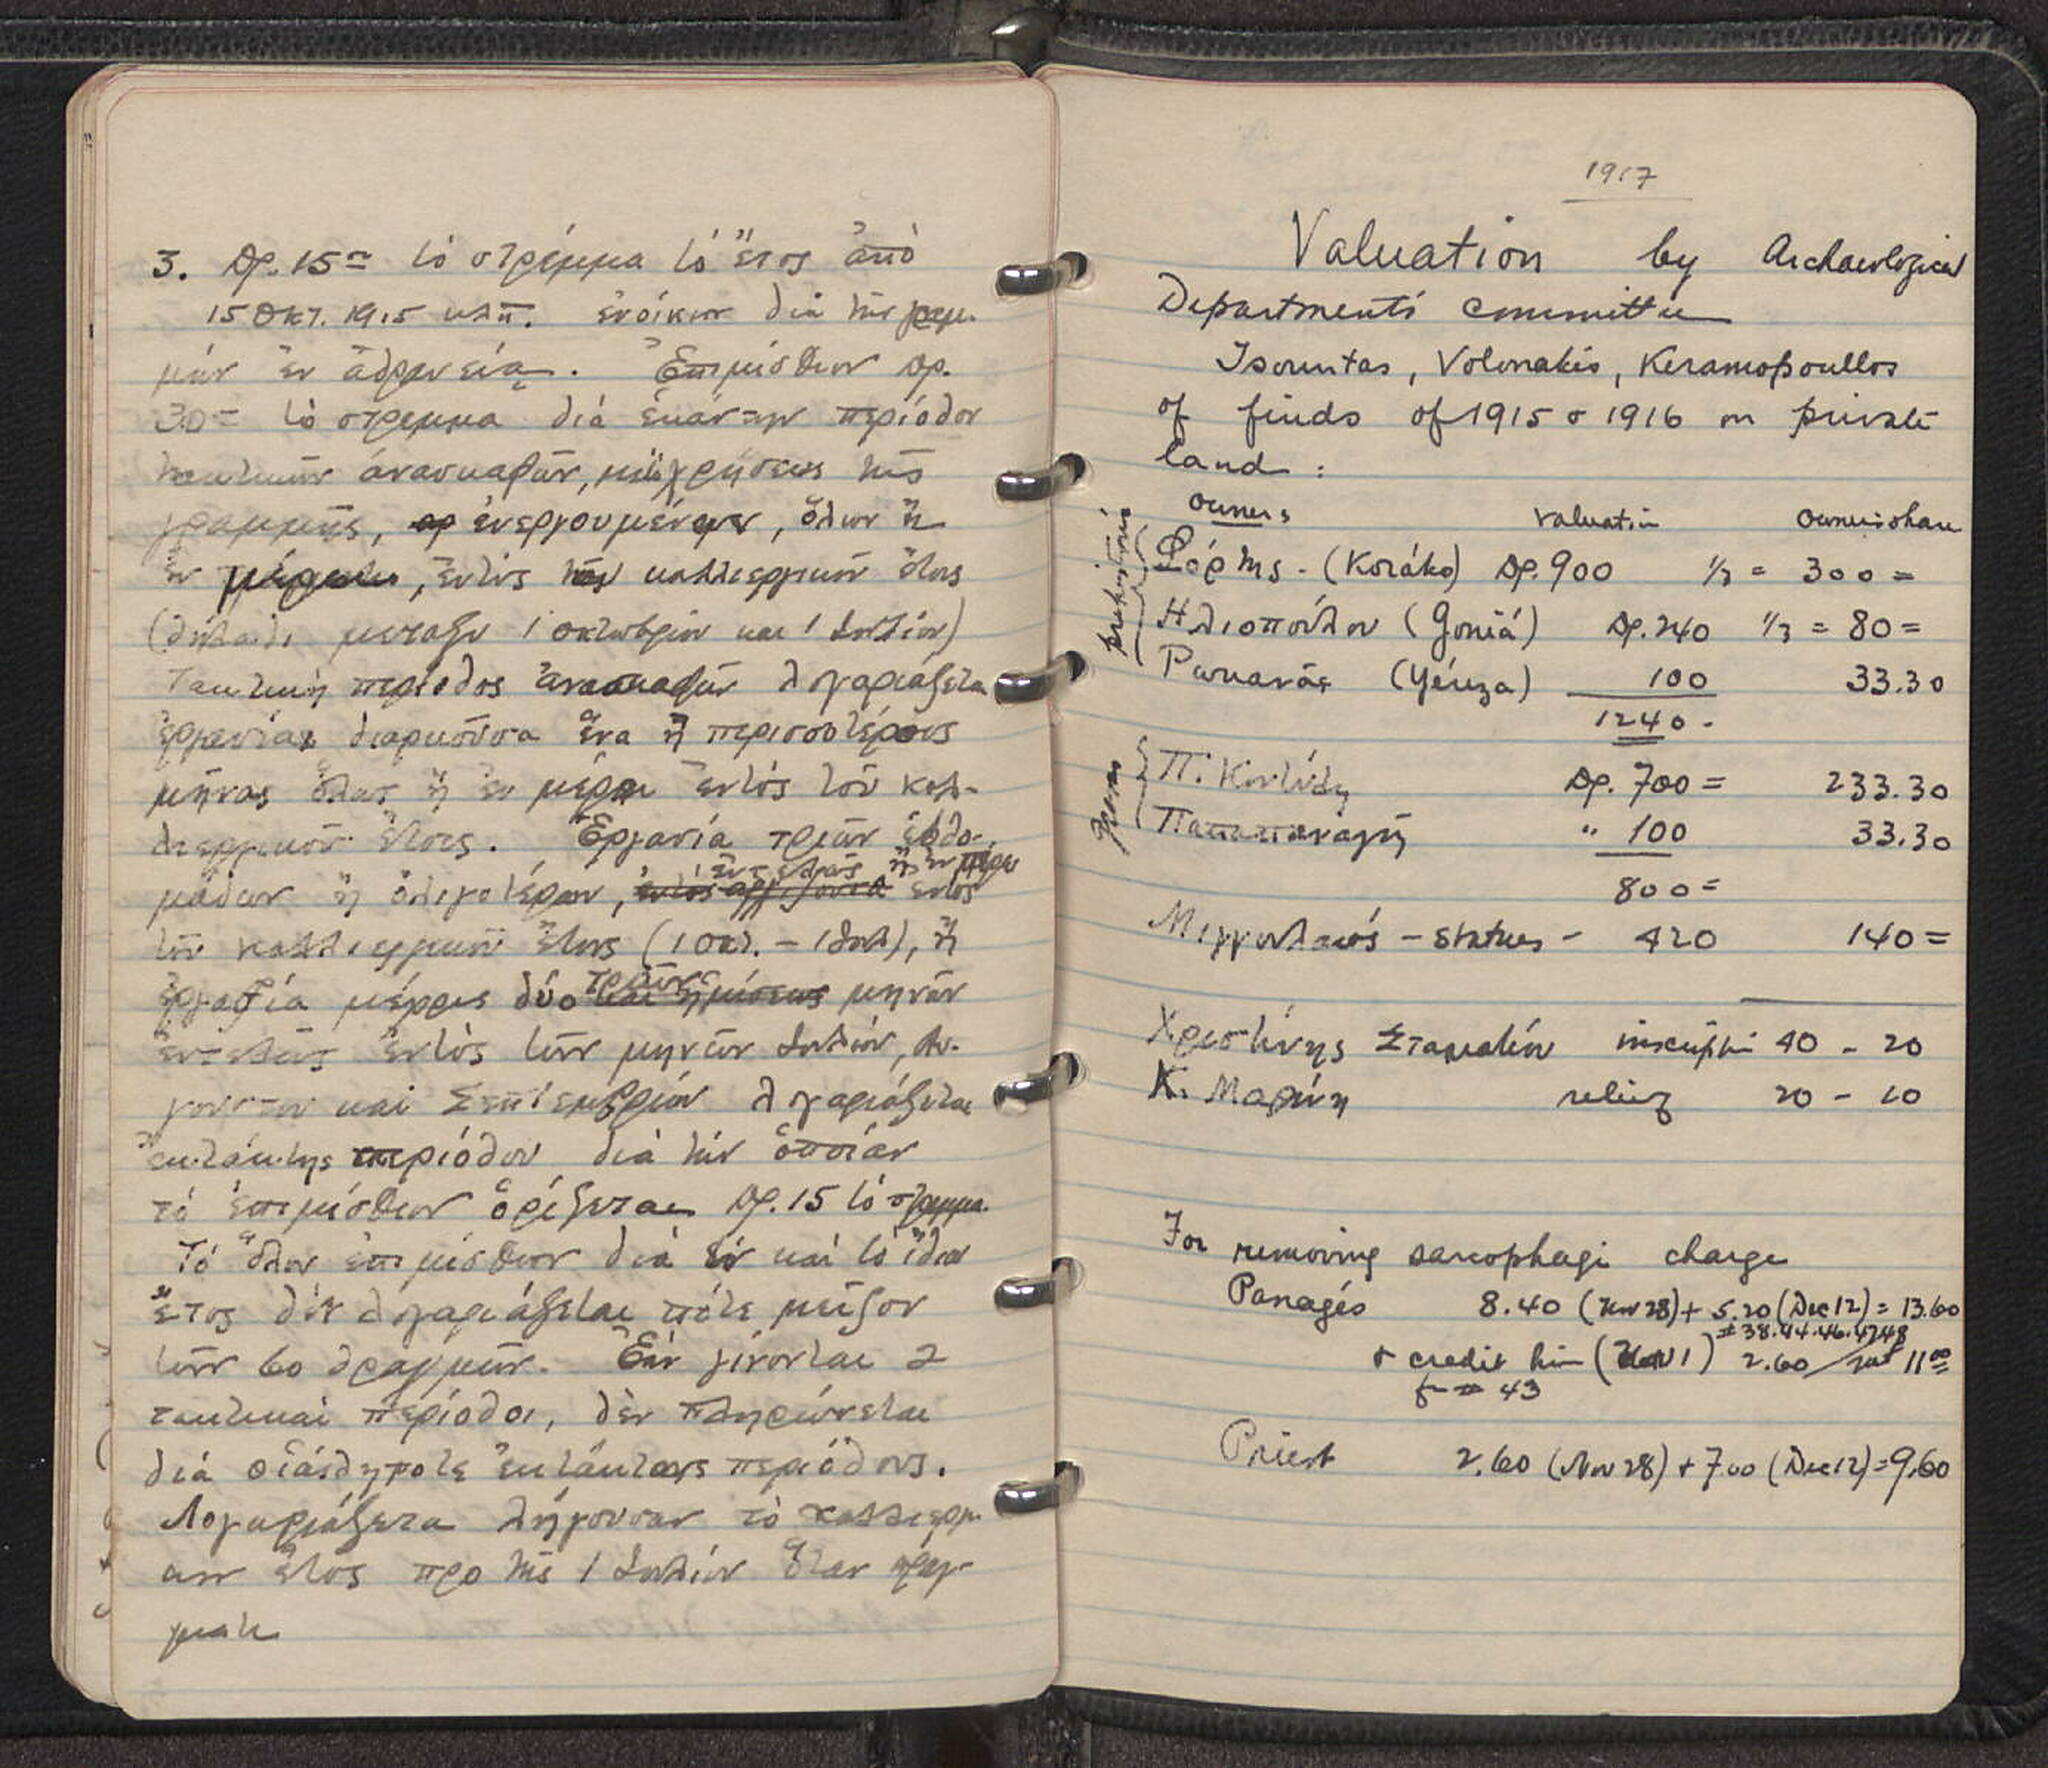 3. Δρ. 15= τὸ στρέμμα τὸ ἔτος ἀπὸ
15 Οκτ. 1915 κλπ. ἐνοίκιον διὰ τὴν γραμ-
μὴν ἐν ἀδρανείᾳ. Ἐπιμίσθιον Δρ.
30= τὸ στρεμμα διὰ ἑκάστην περίοδον
τακτικῶν ἀνασκαφῶν, χρήσεως τῆς
γραμμῆς, ἐνεργουμένων, ὅλων ἢ
ἐν μέρει, ἐντὸς τοῦ καλλιεργικοῦ ἔτους
(δηλαδὴ μεταξυ 1 οκτωβρίου και 1 Ιουλίου)
Τακτικὴ περίοδος ἀνασκαφῶν λογαριάζεται
ἐργασία διαρκοῦσα ἕνα ἢ περισσοτέρους
μῆνας ὅλως ἢ ἐν μέρει ἐντὸς τοῦ καλ-
λιεργικοῦ ἔτους. Ἐργασία τριῶν ἑβδο-
μάδων ἢ ὀλιγοτέρων, ἐντελῶς ἢ ἐν μέρει ἐντὸς
τοῦ καλλιεργικοῦ ἔτους (1 οκτ. – 1 Ιουλ), ἢ
ἐργασία μέχρις δύο τριῶν καὶ ἡμίσεως μηνῶν
ἐντελῶς ἐντὸς τῶν μηνῶν Ιουλίου, Αυ-
γούστου καὶ Σεπτεμβρίου λογαριάζεται
ἐκτάκτης περιόδου διὰ τὴν ὁποίαν
τὸ ἐπιμίσθιον ὁρίζεται Δρ. 15 τὸ στρεμμα.
Τὸ ὅλον ἐπιμίσθιον διὰ ἓν καὶ τὸ ἴδιον
ἔτος δὲν λογαριάζεται πότε μεῖζον
τῶν 60 δραχμῶν. Ἐὰν γίνονται 2
τακτικαὶ περίοδοι, δὲν πληρώνεται
διὰ οἱάσδηποτε ἐκτάκτους περιόδους.
Λογαριάζεται λήγουσαν τὸ καλλιεργι-
κον ἔτος προ τῆς 1 Ιουλίου ὅταν πράγ-
ματι
1917
Valuation by Archaeological
Department's committee
Tsountas, Volonakis, Keramopoullos
of finds of 1915 & 1916 on private
land:
owners valuation owner's share
Φόρτης - (Koráko) Δρ. 900 1/3 = 300=
Ηλιοπούλου (Goniá) Δρ. 240 1/3 = 80=
Ρωκανᾶς (Yériza) 100 33.30
1240.
prehistoric
Π. Κοντύλη Δρ. 700= 233.30
Παπαπαναγῆ " 100 33.30
800=
Μιχγουλαιός - statues - 420 140=
Χριστίνης Σταματίου inscription 40 - 20
Κ. Μαρίνη relief 20 - 10
For removing sarcophagi charge
Panagés 8.40 (Nov 28) + 5.20 (Dec 12) = 13.60
# 38.44.46.47.48
& credit him (Nov 1) 2.60 / net 11.00
for # 43
Priest 2.60 (Nov 28) + 7.00 (Dec 12) = 9.60